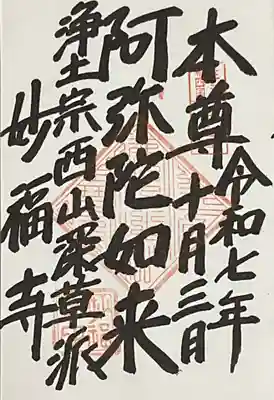 本尊
令和七年
十月三日
阿弥陀如来
浄土宗西山深草派
妙福寺